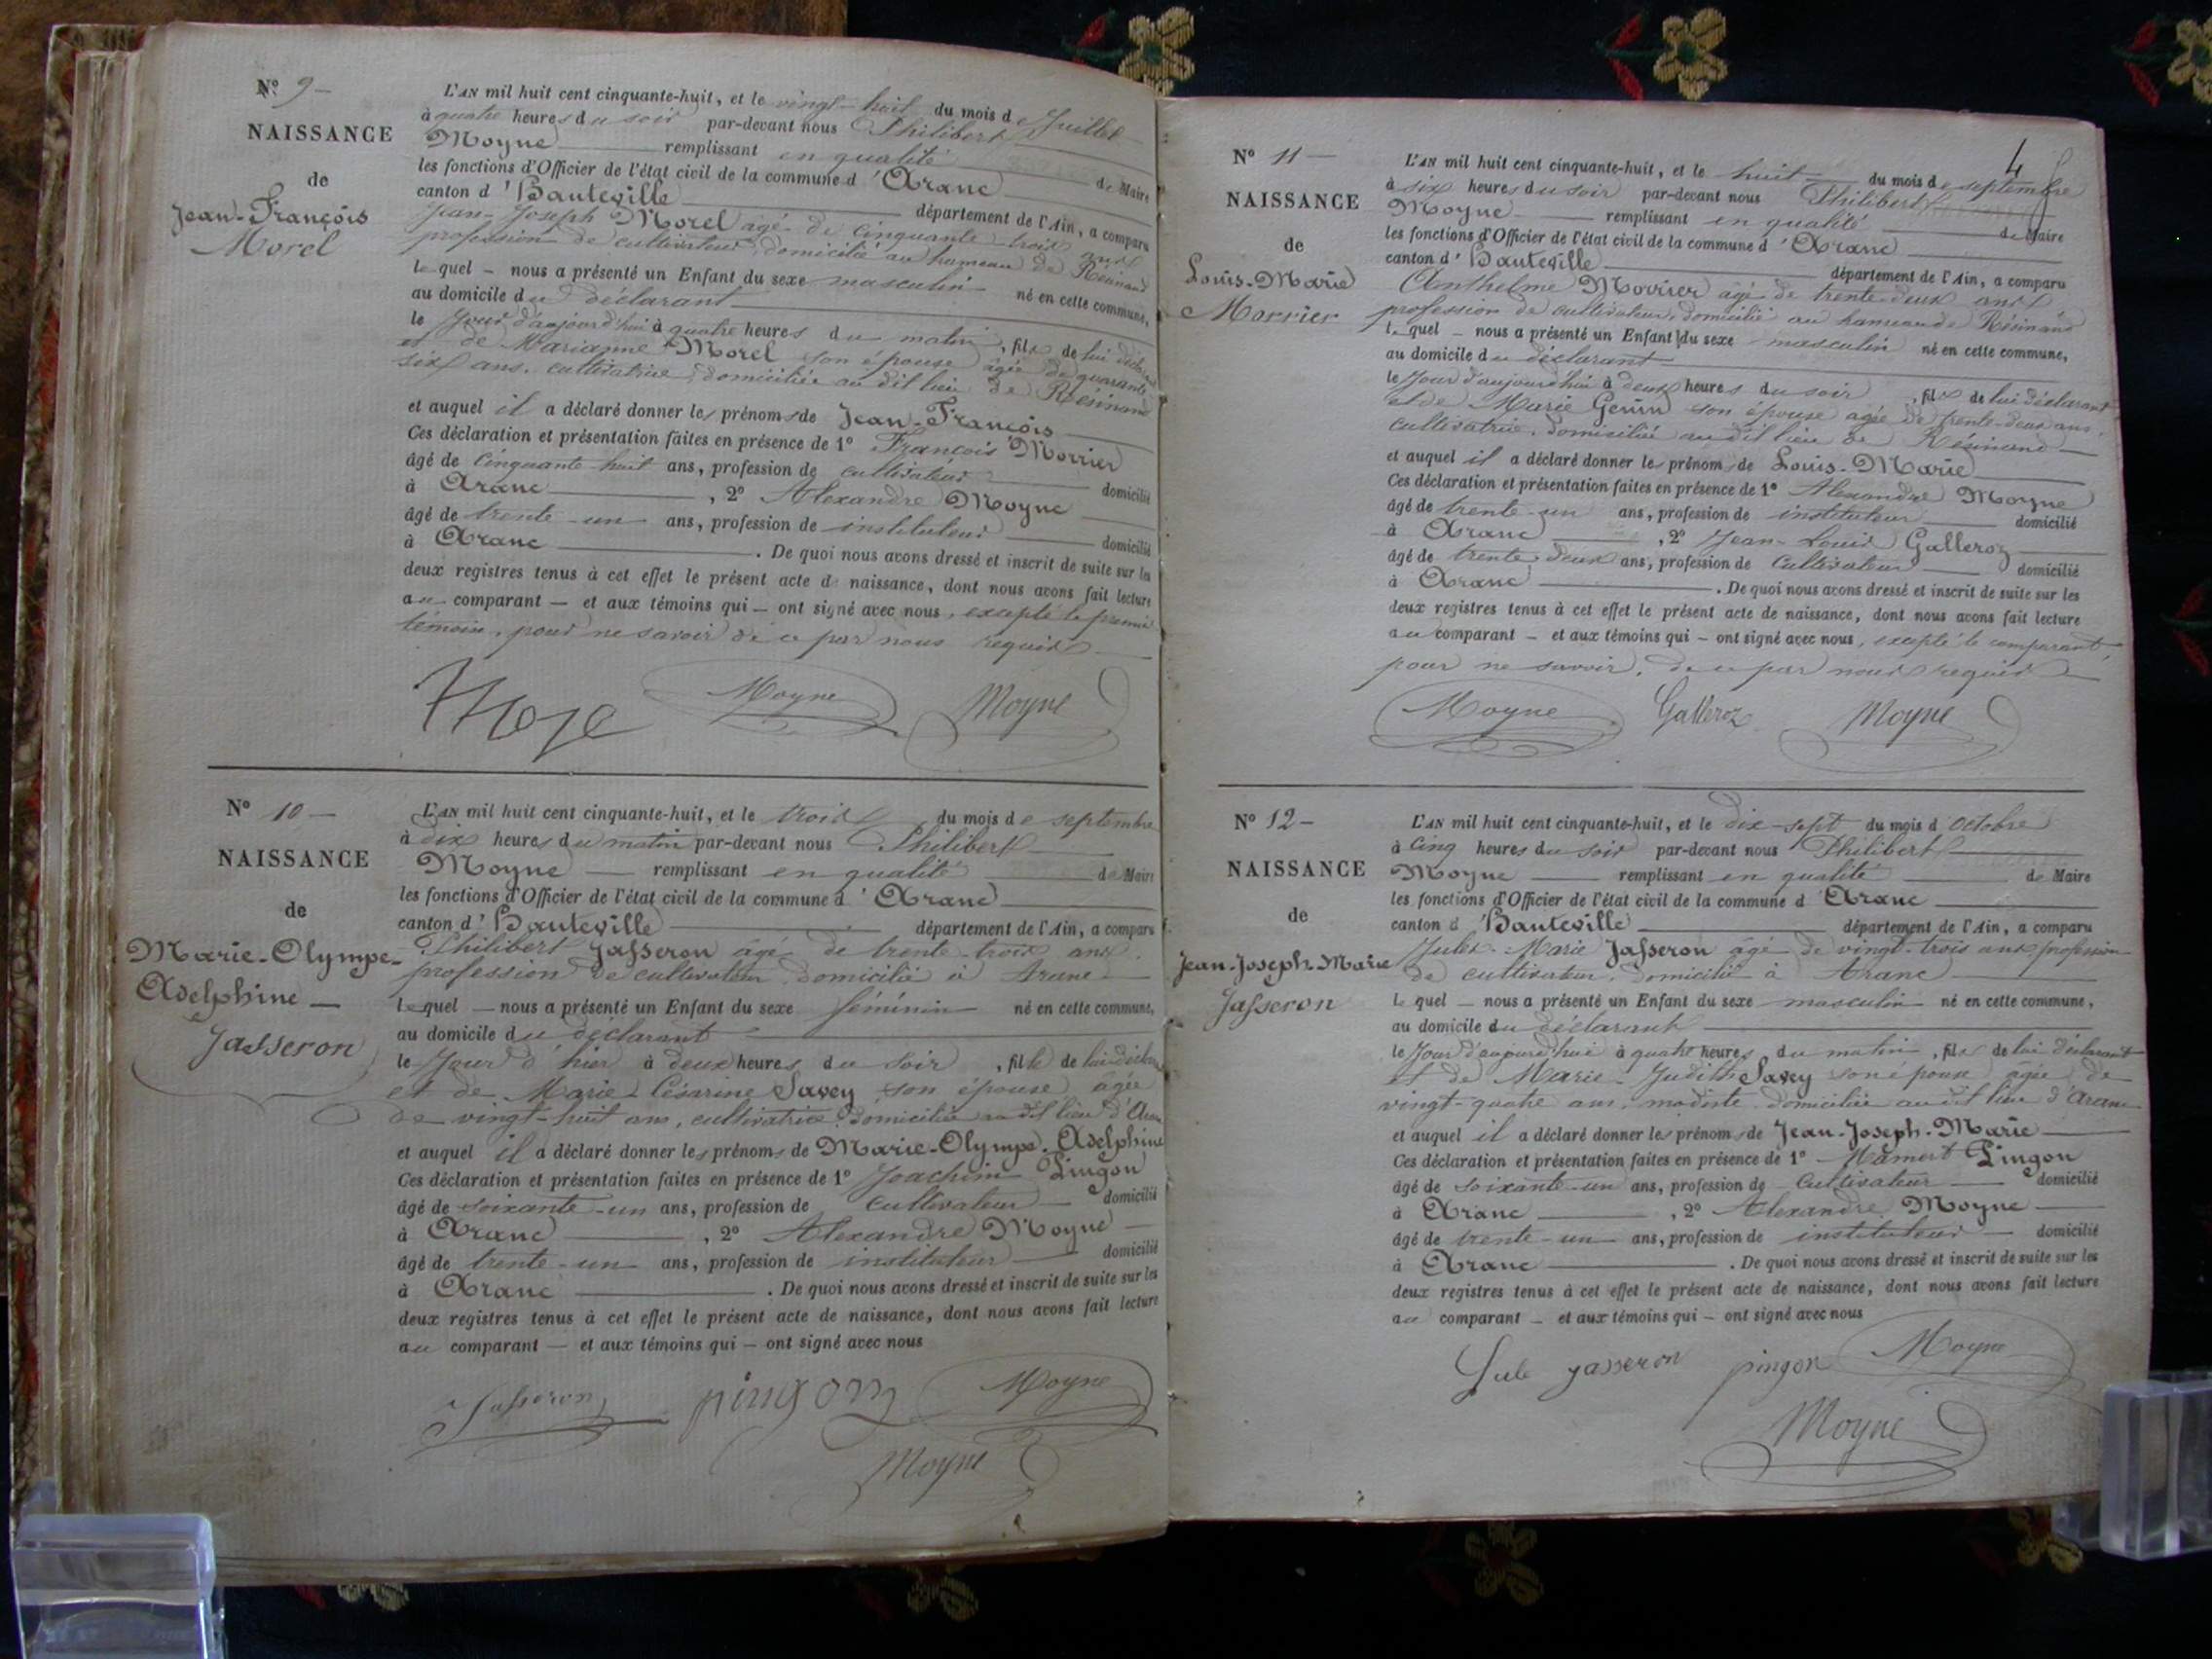 N° 9 —
NAISSANCE
de
Jean-François
Morel
L'AN mil huit cent cinquante-huit, et le vingt-huit du mois de Juillet
à quatre heures du soir par-devant nous Philibert
Moyne remplissant en qualité de Maire
les fonctions d'Officier de l'état civil de la commune d'Aranc
canton d'Hauteville département de l'Ain, a comparu
Jean-Joseph Morel âgé de cinquante-trois ans
profession de cultivateur, domicilié au hameau de Résinand
lequel — nous a présenté un Enfant du sexe masculin né en cette commune,
au domicile du déclarant
le Jour d'aujourd'hui à quatre heures du matin, fils de lui
et de Marianne Morel son épouse âgée de quarante
six ans, cultivatrice, domiciliée au dit lieu de Résinand
et auquel il a déclaré donner les prénoms de Jean-François
Ces déclaration et présentation faites en présence de 1° François Morrier
âgé de cinquante-huit ans, profession de cultivateur domicilié
à Aranc, 2° Alexandre Moyne
âgé de trente-un ans, profession de instituteur domicilié
à Aranc. De quoi nous avons dressé et inscrit de suite sur les
deux registres tenus à cet effet le présent acte de naissance, dont nous avons fait lecture
au comparant — et aux témoins qui — ont signé avec nous, excepté le premier
témoin, pour ne savoir de ce par nous requis
Moyne Moyne
N° 10 —
NAISSANCE
de
Marie-Olympe-
Adelphine —
Jasseron
L'AN mil huit cent cinquante-huit, et le trois du mois de septembre
à dix heures du matin par-devant nous Philibert
Moyne — remplissant en qualité de Maire
les fonctions d'Officier de l'état civil de la commune d'Aranc
canton d'Hauteville département de l'Ain, a comparu
Philibert Jasseron âgé de trente-trois ans,
profession de cultivateur, domicilié à Aranc
lequel — nous a présenté un Enfant du sexe féminin né en cette commune,
au domicile du déclarant
le Jour d'hier à deux heures du soir, fille de lui déclarant
et de Marie Césarine Savey son épouse âgée
de vingt-huit ans, cultivatrice domiciliée au dit lieu d'Aranc
et auquel il a déclaré donner les prénoms de Marie-Olympe-Adelphine
Ces déclaration et présentation faites en présence de 1° Joachim Pingon
âgé de soixante-un ans, profession de cultivateur — domicilié
à Aranc, 2° Alexandre Moyne —
âgé de trente-un ans, profession de instituteur domicilié
à Aranc. De quoi nous avons dressé et inscrit de suite sur les
deux registres tenus à cet effet le présent acte de naissance, dont nous avons fait lecture
au comparant — et aux témoins qui — ont signé avec nous
Jasseron pingon Moyne
Moyne
4
N° 11 —
NAISSANCE
de
Louis-Marie
Morrier
L'AN mil huit cent cinquante-huit, et le huit du mois de septembre
à six heures du soir par-devant nous Philibert
Moyne remplissant en qualité de Maire
les fonctions d'Officier de l'état civil de la commune d'Aranc
canton d'Hauteville département de l'Ain, a comparu
Anthelme Morrier âgé de trente-deux ans
profession de cultivateur, domicilié au hameau de Résinand
lequel — nous a présenté un Enfant du sexe masculin né en cette commune,
au domicile du déclarant
le Jour d'aujourd'hui à deux heures du soir, fils de lui déclarant
et de Marie son épouse agée de trente-deux ans,
cultivatrice, domiciliée au dit lieu de Résinand —
et auquel il a déclaré donner les prénoms de Louis-Marie
Ces déclaration et présentation faites en présence de 1° Alexandre Moyne
âgé de trente-un ans, profession de instituteur domicilié
à Aranc, 2° Jean-Louis Galleroz
âgé de trente-deux ans, profession de Cultivateur domicilié
à Aranc. De quoi nous avons dressé et inscrit de suite sur les
deux registres tenus à cet effet le présent acte de naissance, dont nous avons fait lecture
au comparant — et aux témoins qui — ont signé avec nous, excepté le comparant,
pour ne savoir, de ce par nous requis
Moyne Galleroz Moyne
N° 12 —
NAISSANCE
de
Jean-Joseph-Marie
Jasseron
L'AN mil huit cent cinquante-huit, et le dix-sept du mois d'Octobre
à cinq heures du soir par-devant nous Philibert
Moyne remplissant en qualité de Maire
les fonctions d'Officier de l'état civil de la commune d'Aranc
canton d'Hauteville département de l'Ain, a comparu
Jules-Marie Jasseron âgé de vingt-trois ans, profession
de cultivateur, domicilié à Aranc
lequel — nous a présenté un Enfant du sexe masculin né en cette commune,
au domicile du déclarant
le Jour d'aujourd'hui à quatre heures du matin, fils de lui déclarant
et de Marie-Judith Savey son épouse âgée de
vingt-quatre ans, modiste domiciliée au dit lieu d'Aranc
et auquel il a déclaré donner les prénoms de Jean-Joseph-Marie
Ces déclaration et présentation faites en présence de 1° Mamert Pingon
âgé de soixante-un ans, profession de Cultivateur domicilié
à Aranc, 2° Alexandre Moyne
âgé de trente-un ans, profession de instituteur domicilié
à Aranc. De quoi nous avons dressé et inscrit de suite sur les
deux registres tenus à cet effet le présent acte de naissance, dont nous avons fait lecture
au comparant — et aux témoins qui — ont signé avec nous
Jule jasseron pingon Moyne
Moyne